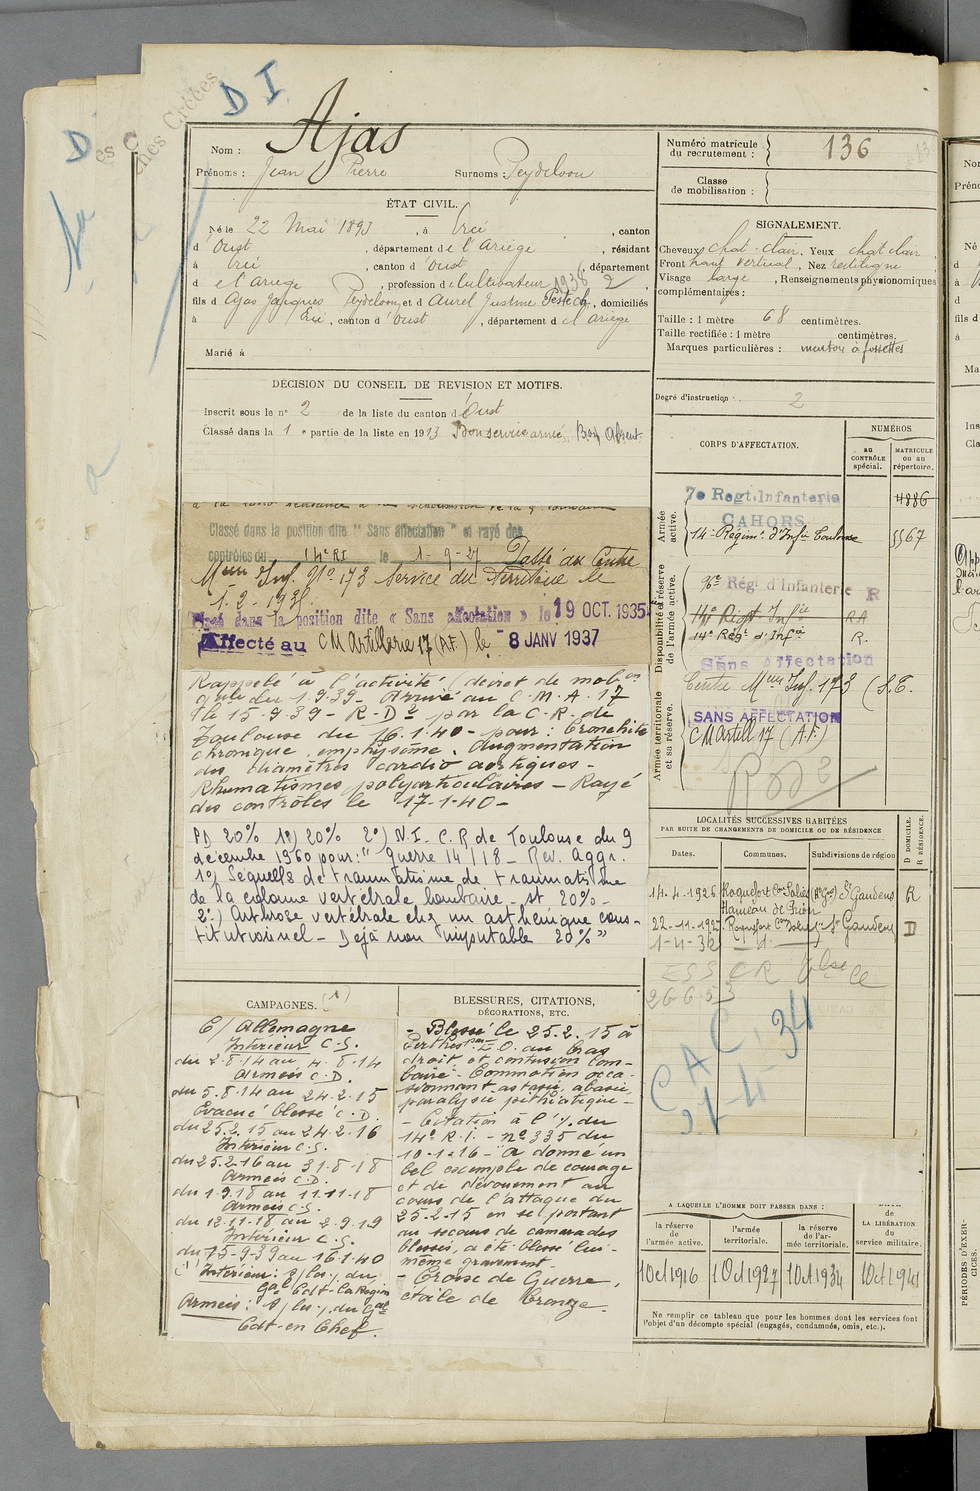 D I
D
Nom : Ajas
Prénoms : Jean Pierre Surnoms : Peydeloou
Numéro matricule du recrutement : 136
Classe de mobilisation :
ÉTAT CIVIL.
Né le 22 Mai 1893, à Ercé, canton
d'Oust, département de l'Ariège, résidant
à Ercé, canton d'Oust, département
d el Ariège, profession de Cultivateur 1936 2
fils d Ajas Jacques Peydeloou et d Aurel Justine , domiciliés
à , canton d'Oust, département d el Ariège
Marié à
SIGNALEMENT.
Cheveux chat. clair. Yeux chat clair
Front haut vertical, Nez rectiligne
Visage large, Renseignements physionomiques
complémentaires :
Taille : 1 mètre 68 centimètres.
Taille rectifiée : 1 mètre centimètres.
Marques particulières : menton à fossettes
Degré d'instruction : 2
DÉCISION DU CONSEIL DE REVISION ET MOTIFS.
Inscrit sous le n° 2 de la liste du canton d'Oust
Classé dans la 1e partie de la liste en 1913 Bon service armé, Bon Absent
Classé dans la position dite "Sans affectation" et rayé des
contrôles du 14e RI le 1-9-27 Passé au Centre
Mum Inf. N° 173 Service du Territoire le
1-2-193
Placé dans la position dite « Sans affectation » le 19 OCT. 1935
Affecté au CM Artillerie 17 (A.F.) le 8 JANV 1937
Rappelé à l'activité (décret de mob on
gale du 1.9.39 - Arrivé au C.M.A. 17
le 15.9.39 - R.D. 2 par la C.R. de
Toulouse du 16.1.40 - pour : bronchite
chronique, emphysème, augmentation
des diamètres cardio aortiques -
Rhumatismes polyarticulaires - Rayé
des contrôles le 17-1-40 -
PD 20% 1°) 20% 2°) N.I. C.R de Toulouse du 9
décembre 1960 pour : "guerre 14/18 - Rev. Aggr.
1°) Séquelles de traumatisme de traumatisme
de la colonne vertébrale lombaire - st 20% -
2°) Arthrose vertébrale chez un asthénique cons-
titutionnel - Déjà non imputable 20%"
CORPS D'AFFECTATION.
NUMÉROS
AU CONTRÔLE spécial.
MATRICULE ou au répertoire.
Armée active.
7e Regt. Infanterie 4886
CAHORS
14e Régim t d'Inf ie Toulouse 5567
Disponibilité et réserve de l'armée active.
96e Régt d'Infanterie R
14e Régt Inf ie RA
14e Régt d'Inf ie R.
Sans Affectation
Armée territoriale et sa réserve.
Centre Mum Inf. 173 (S.T.
SANS AFFECTATION
CM Artill 17 (A.F.)
R d 2
LOCALITÉS SUCCESSIVES HABITÉES
PAR SUITE DE CHANGEMENTS DE DOMICILE OU DE RÉSIDENCE
Dates. Communes. Subdivisions de région D DOMICILE. R RÉSIDENCE.
14-4-1926 Roquefort Con Salies (Hte Gne) St Gaudens R
Hameau de
22-11-1927 Roquefort St Gaudens D
1-4-32
ESS CR
26653
C A C. 34
21-4
CAMPAGNES. (1)
C/ Allemagne
Intérieur C.S.
du 2.8.14 au 4.8.14
Armées C.D.
du 5.8.14 au 24.2.15
Evacué blessé C.D.
du 25.2.15 au 24.2.16
Intérieur C.S.
du 25.2.16 au 31.8.18
Armées C.D.
du 1.9.18 au 11.11.18
Armées C.S.
du 12.11.18 au 2.9.19
Intérieur C.S.
du 15-9-39 au 16.1.40
(1) Intérieur : s/ les y. du
Gal Cdt - la Région
Armées : s/ les y. du Gal
Cdt - en Chef.
BLESSURES, CITATIONS,
DÉCORATIONS, ETC.
- Blessé le 25.2.15 à
Perthes par E.O. au bras
droit et contusion lom-
baire. Commotion occa-
sionnant astasie, abasie,
paralysie pithiatique -
- Citation à l'o/. du
14e R.I. - n° 335 du
10-1-16 - "A donné un
bel exemple de courage
et de dévouement au
cours de l'attaque du
25-2-15 en se portant
au secours de camarades
blessés, a été blessé lui-
même gravement -
- Croix de Guerre,
étoile de bronze.
A LAQUELLE L'HOMME DOIT PASSER DANS :
la réserve de l'armée active. l'armée territoriale. la réserve de l'armée territoriale. de LA LIBÉRATION du service militaire.
1 Oct 1916 1 Oct 1927 1 Oct 1934 1 Oct 1941
Ne remplir ce tableau que pour les hommes dont les services font
l'objet d'un décompte spécial (engagés, condamnés, omis, etc.).
PÉRIODES D'EXER-
CICES.